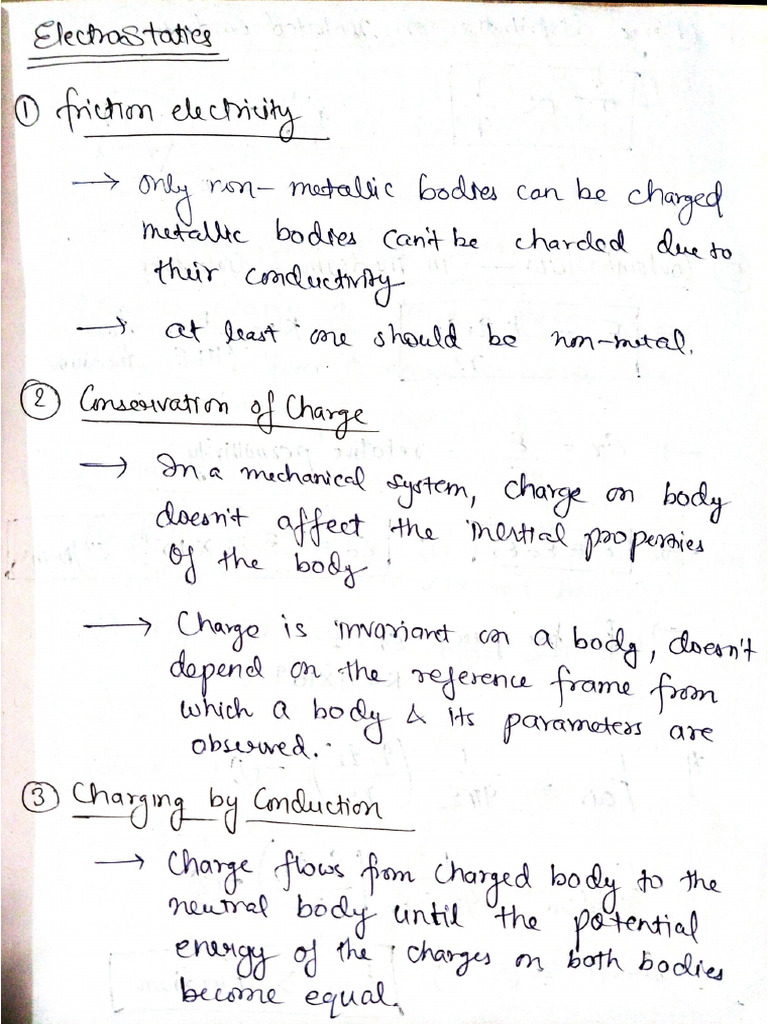 Electrostatics
① friction electricity
→ only non-metallic bodies can be charged
metallic bodies can't be charded due to
their conductivity
→ at least one should be non-metal.
② Conservation of Charge
→ In a mechanical system, charge on body
doesn't affect the inertial properties
of the body
→ Charge is invariant on a body, doesn't
depend on the reference frame from
which a body & its parameters are
observed.
③ Charging by Conduction
→ Charge flows from charged body to the
neutral body until the potential
energy of the charges on both bodies
become equal.